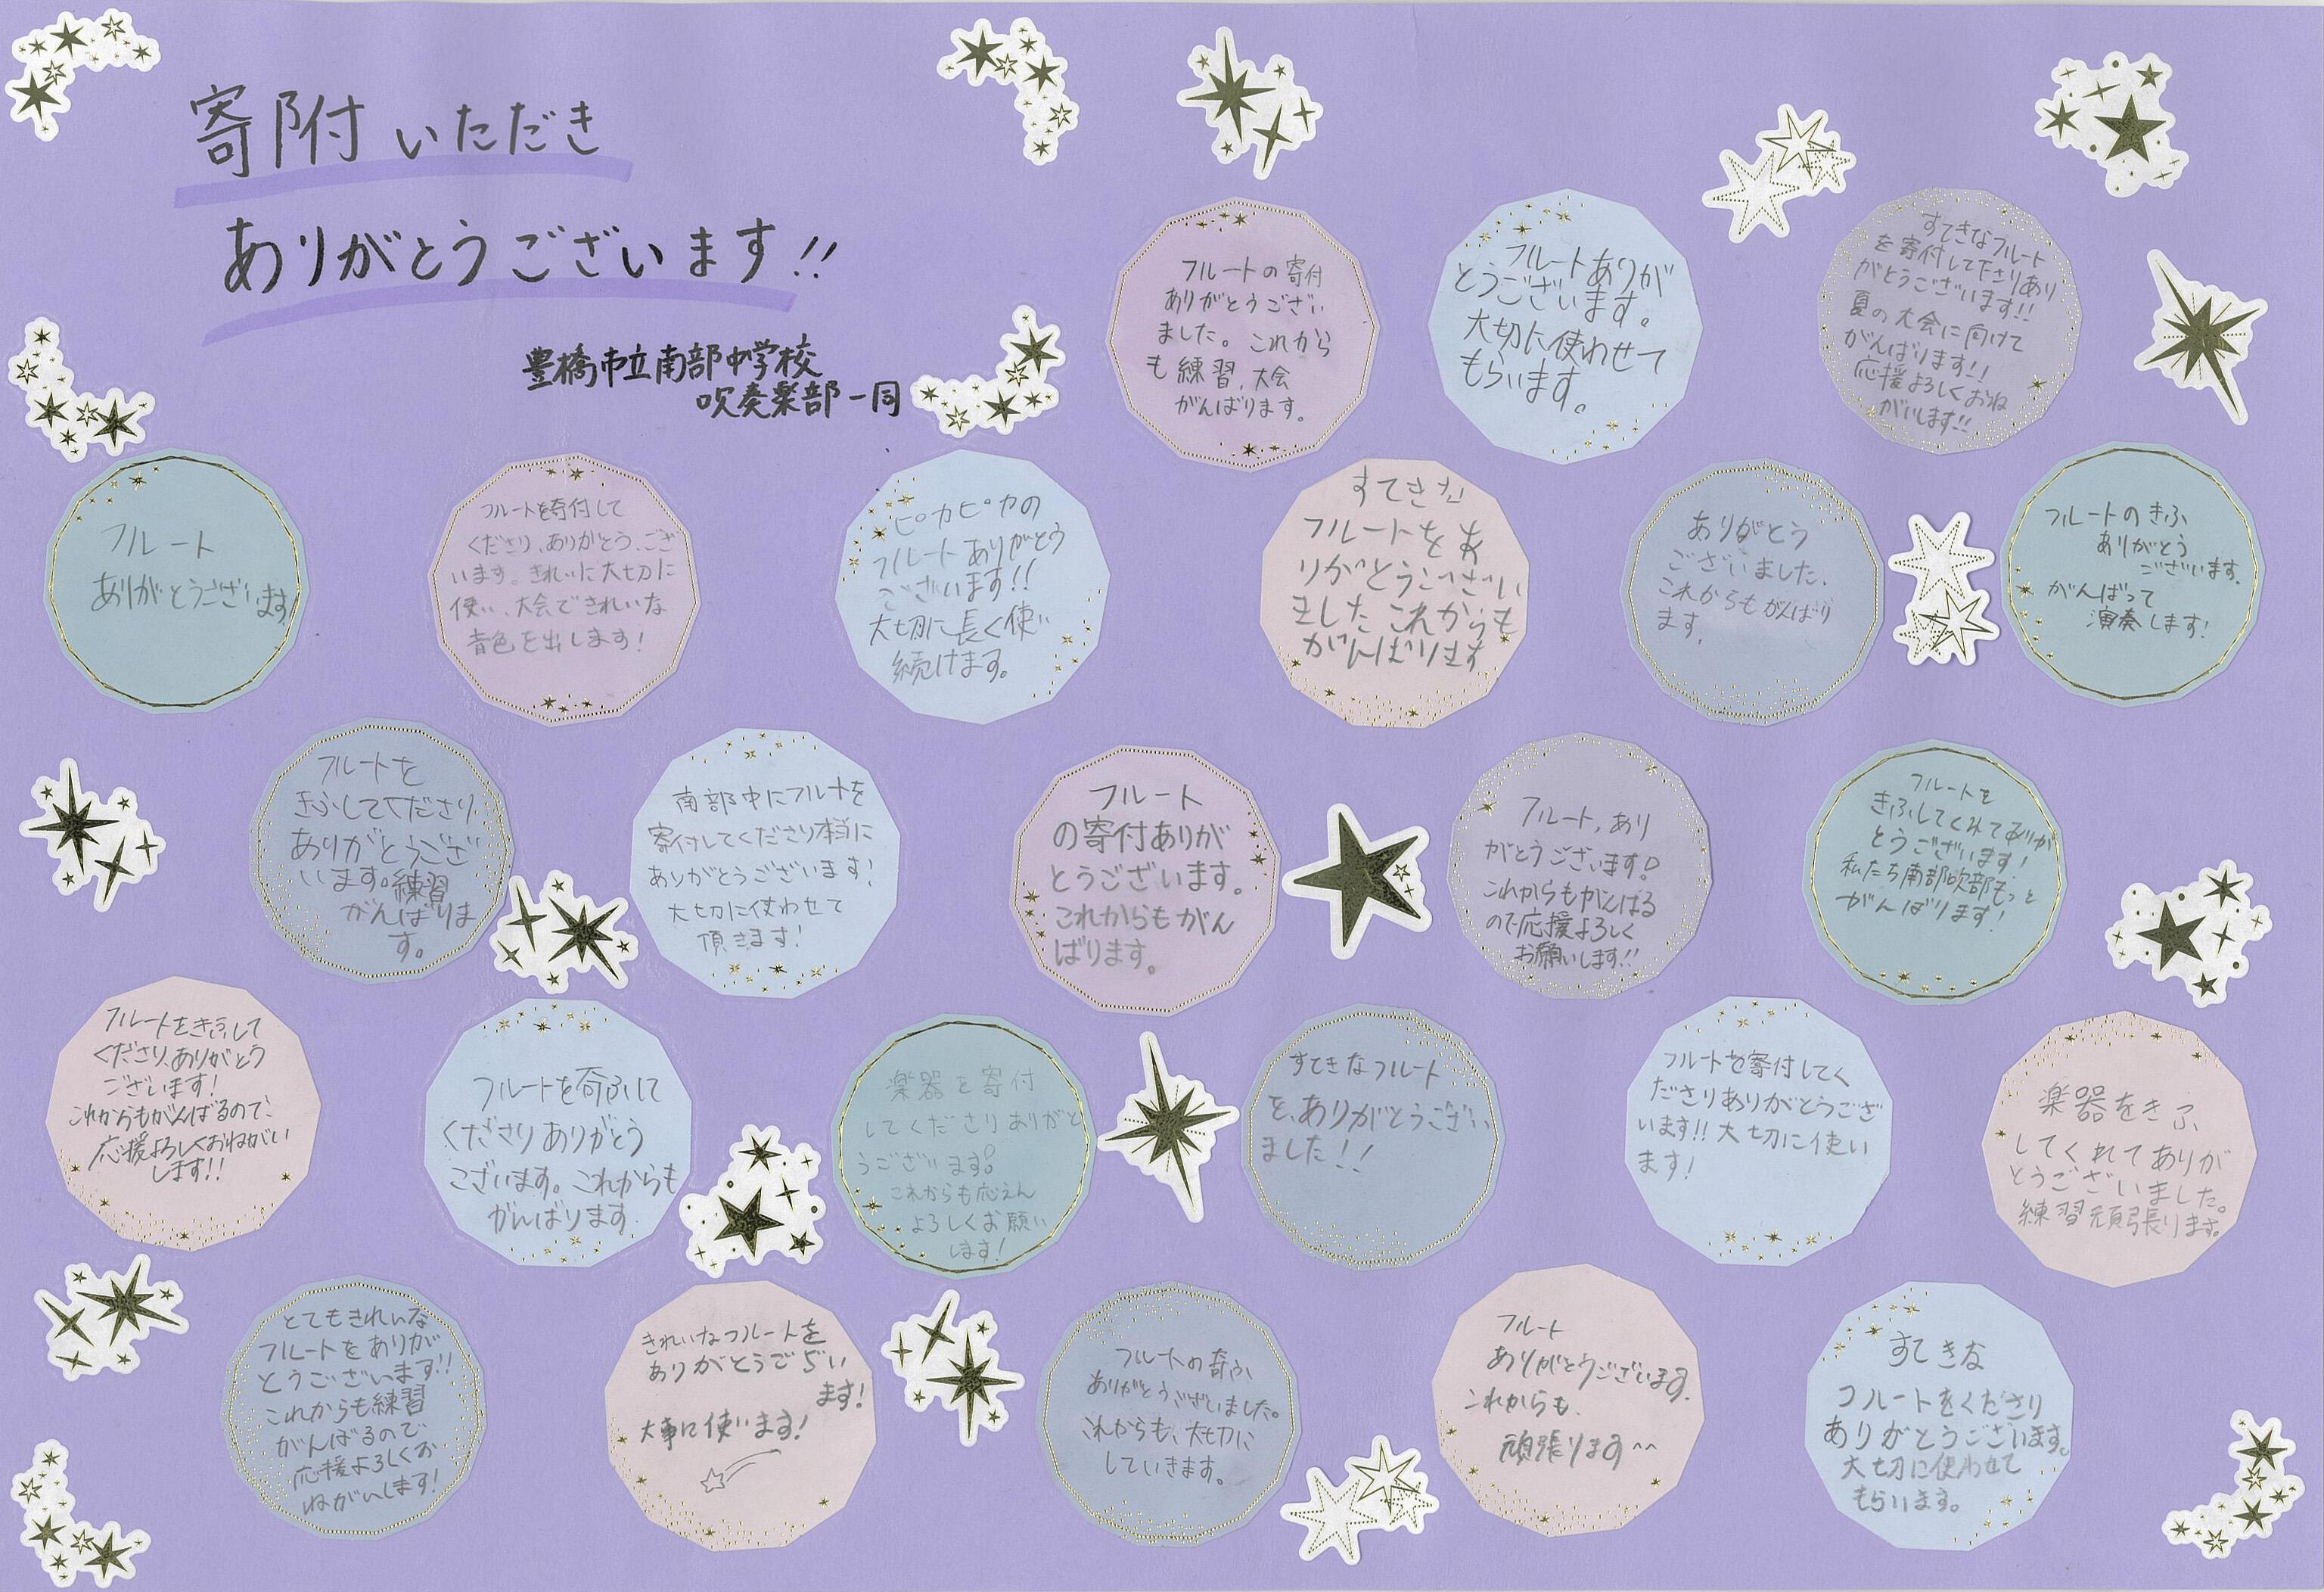 寄附いただき
ありがとうございます!!
豊橋市立南部中学校
吹奏楽部一同
フルートの寄付
ありがとうござい
ました。これから
も練習、大会
がんばります。
フルートありが
とうございます。
大切に使わせて
もらいます。
すてきなフルート
を寄付して下さりあり
がとうございます!!
夏の大会に向けて
がんばります!!
応援よろしくおね
がいします!!
フルート
ありがとうございます
フルートを寄付して
くださり、ありがとう、ござ
います。きれいに大切に
使い、大会できれいな
音色を出します!
ピカピカの
フルートありがとう
ございます!!
大切に長く使い
続けます。
すてきな
フルートをあ
りがとうござい
ましたこれからも
がんばります
ありがとう
ございました、
これからもがんばり
ます、
フルートのきふ
ありがとう
ございます、
がんばって
演奏します!
フルートを
きふしてくださり
ありがとうござ
います。練習
がんばりま
す。
南部中にフルートを
寄付してくださり本当に
ありがとうございます!
大切に使わせて
頂きます!
フルート
の寄付ありが
とうございます。
これからもがん
ばります。
フルート,あり
がとうございます!
これからもがんばる
ので応援よろしく
お願いします!!
フルートを
きふしてくれてありが
とうございます!
私たち南部吹部もっと
がんばります!
フルートをきふして
くださり、ありがとう
ございます!
これからもがんばるので、
応援よろしくおねがい
します!!
フルートを寄ふして
くださりありがとう
ございます。これからも
がんばります.
楽器を寄付
してくださりありがと
うございます。
これからも応えん
よろしくお願い
します!
すてきなフルート
を、ありがとうござい
ました!!
フルートを寄付してく
ださりありがとうござ
います!!大切に使い
ます!
楽器をきふ
してくれてありが
とうございました。
練習頑張ります。
とてもきれいな
フルートをありが
とうございます!!
これからも練習
がんばるので
応援よろしくお
ねがいします!
きれいなフルートを
ありがとうござい
ます!
大事に使います!
フルートの寄ふ
ありがとうございました。
これからも、大切に
していきます。
フルート
ありがとうございます.
これからも、
頑張ります^^
すてきな
フルートをくださり
ありがとうございます。
大切に使わせて
もらいます。